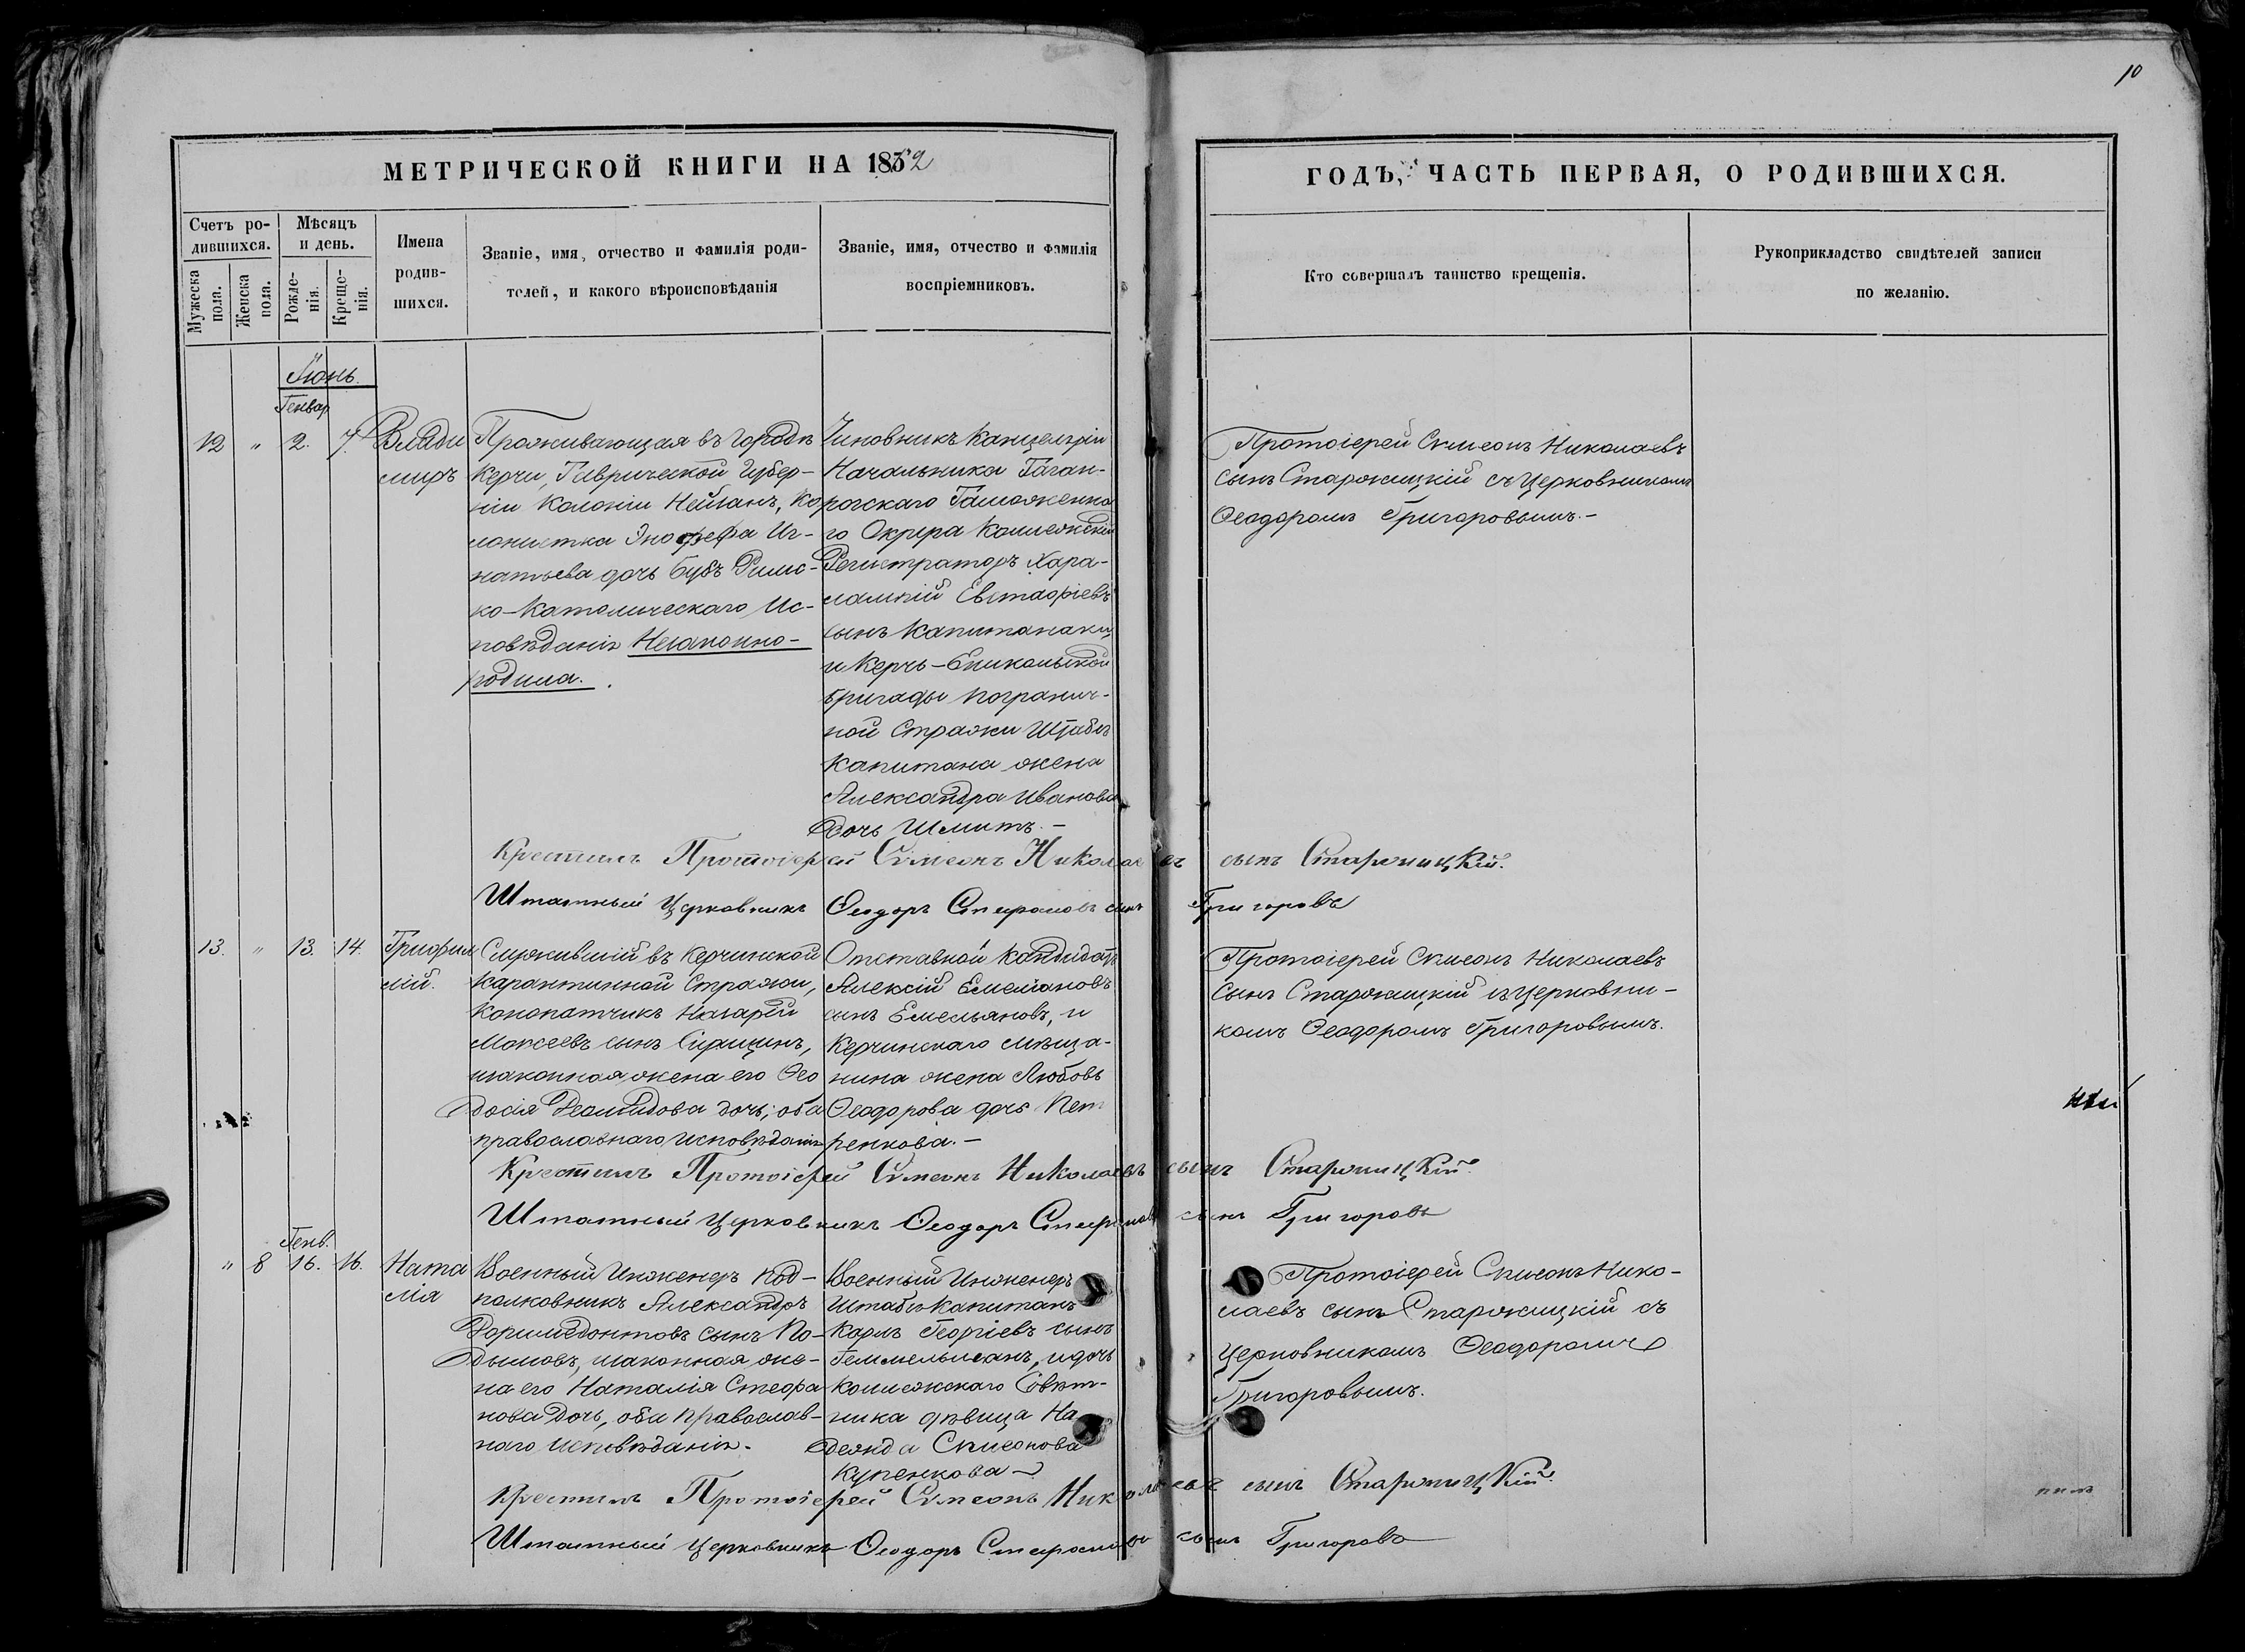 10
МЕТРИЧЕСКОЙ КНИГИ НА 1852
ГОДЪ, ЧАСТЬ ПЕРВАЯ, О РОДИВШИХСЯ.
Счетъ ро-
дившихся.
Мужеска
пола.
Женска
пола.
Мѣсяцъ
и день.
Рожде-
нія.
Креще-
нія.
Имена
родив-
шихся.
Званіе, имя, отчество и фамилія роди-
телей, и какого вѣроисповѣданія
Званіе, имя, отчество и фамилія
воспріемниковъ.
Кто совершалъ таинство крещенія.
Рукоприкладство свидѣтелей записи
по желанію.
Іюнь.
Генвар
12 " 2. 7.
Влади
миръ
Проживающая въ городѣ
Керчи, Таврической Губер-
ніи Колоніи Нейзанъ, Ко
лонистка Ігна-
натьева дочь Бубъ Римс-
ко-Католическаго Ис-
повѣданія Незаконно-
родила.
Чиновникъ Канцеляріи
Начальника Таган-
рогскаго Таможенна
го Округа Коллежскій
Регистраторъ Хара-
лампій Евстафіевъ
сынъ Капитанаки,
и Керчь-Еникольской
бригады погранич-
ной Стражи Штабсъ
Капитана жена
Александра Иванова
дочь Шмитъ.-
Протоіерей Сѵмеонъ Николаевъ
сынъ Старожицкій съ Церковникомъ
Ѳеодоромъ Григоровымъ.-
Крестилъ Протоіерей Сѵмеонъ Николаевъ сынъ Старожицкій.
Штатный Церковникъ Ѳеодоръ Стефановъ сынъ Григоровъ
13. " 13. 14.
Трифил
лій.
Служившій въ Керчинской
Карантинной Стражи,
Конопатчикъ Назарій
Моисеевъ сынъ
изаконная жена его Ѳео
досія Деомидова дочь; оба
православнаго исповѣданія
Отставной Кандидатъ
Алексій Емельяновъ
сынъ Емельяновъ, и
Керчинскаго мѣща-
нина жена Любовь
Ѳеодорова дочь Пет
ренкова.-
Протоіерей Сѵмеонъ Николаевъ
Сынъ Старожицкій съ Церковни-
комъ Ѳеодоромъ Григоровымъ.
Крестилъ Протоіерей Сѵмеонъ Николаевъ сынъ Старожицкій.
Штатный Церковникъ Ѳеодоръ Стефановъ сынъ Григоровъ
Генв.
" 8 16. 16.
Ната
лія
Военный Инженеръ Под-
полковникъ Александръ
Доримедонтовъ сынъ По-
дымовъ, изаконная же-
на его Наталія Стефа
нова дочь, оба Православ-
наго исповѣданія.
Военный Инженеръ
Штабсъ Капитанъ
Карлъ Георгіевъ сынъ
Геммельманъ, и дочь
Коллежскаго Совѣт-
ника дѣвица На
дежда Сѵмеонова
Купенкова
Протоіерей Сѵмеонъ Нико-
лаевъ сынъ Старожицкій съ
Церковникомъ Ѳеодоромъ
Григоровымъ.
Крестилъ Протоіерей Сѵмеонъ Николаевъ сынъ Старожицкій.
Штатный Церковникъ Ѳеодоръ Стефановъ сынъ Григоровъ